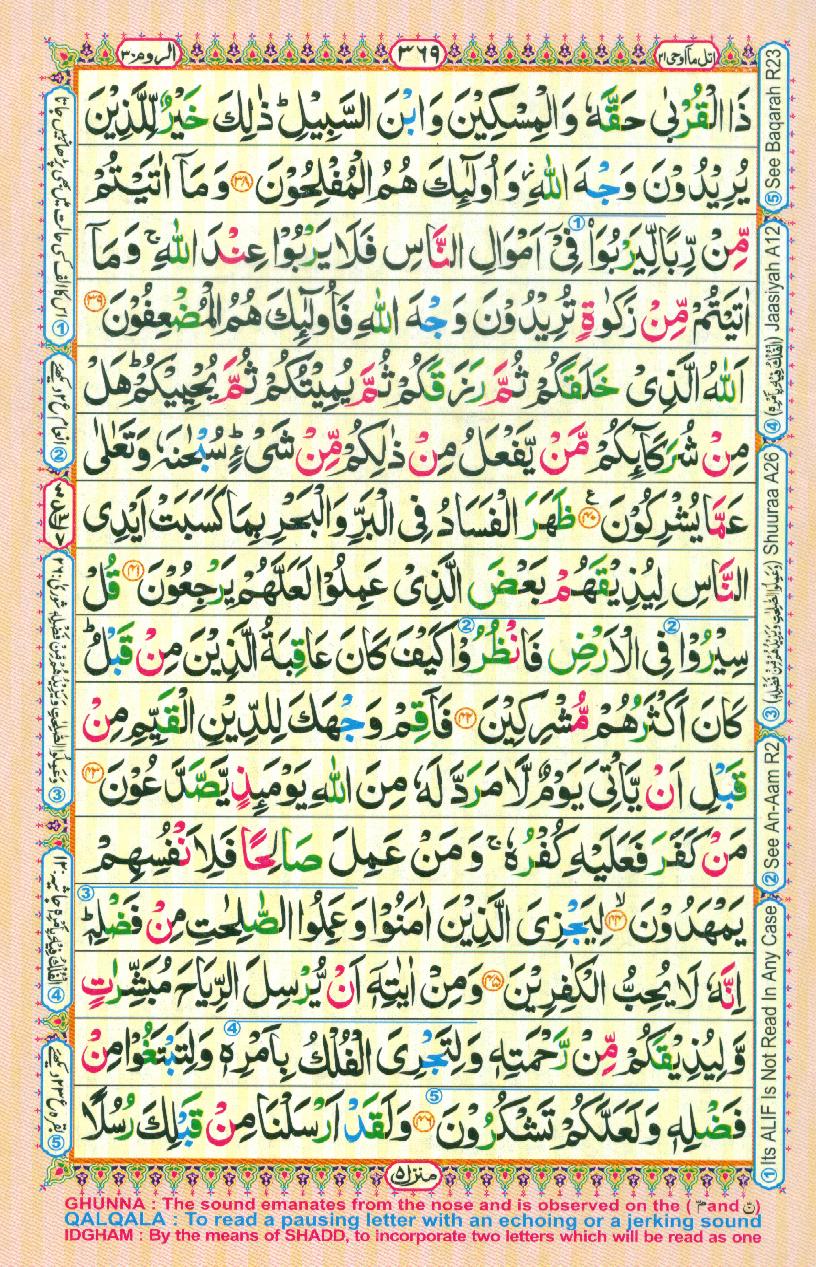 اتل ما اوحی ۲۱
۳۶۹
الروم ۳۰
ذَا الْقُرْبٰى حَقَّهٗ وَالْمِسْكِيْنَ وَابْنَ السَّبِيْلِ ؕ ذٰلِكَ خَيْرٌ لِّلَّذِيْنَ
يُرِيْدُوْنَ وَجْهَ اللّٰهِ ۫ وَاُولٰٓئِكَ هُمُ الْمُفْلِحُوْنَ ﴿۳۸﴾ وَمَاۤ اٰتَيْتُمْ
مِّنْ رِّبًا لِّيَرْبُوَا۟ ① فِيْۤ اَمْوَالِ النَّاسِ فَلَا يَرْبُوْا عِنْدَ اللّٰهِ ۚ وَمَاۤ
اٰتَيْتُمْ مِّنْ زَكٰوةٍ تُرِيْدُوْنَ وَجْهَ اللّٰهِ فَاُولٰٓئِكَ هُمُ الْمُضْعِفُوْنَ ﴿۳۹﴾
اَللّٰهُ الَّذِيْ خَلَقَكُمْ ثُمَّ رَزَقَكُمْ ثُمَّ يُمِيْتُكُمْ ثُمَّ يُحْيِيْكُمْ ؕ هَلْ
مِنْ شُرَكَآئِكُمْ مَّنْ يَّفْعَلُ مِنْ ذٰلِكُمْ مِّنْ شَيْءٍ ؕ سُبْحٰنَهٗ وَتَعٰلٰى
عَمَّا يُشْرِكُوْنَ ﴿۴۰﴾ ظَهَرَ الْفَسَادُ فِي الْبَرِّ وَالْبَحْرِ بِمَا كَسَبَتْ اَيْدِي
النَّاسِ لِيُذِيْقَهُمْ بَعْضَ الَّذِيْ عَمِلُوْا لَعَلَّهُمْ يَرْجِعُوْنَ ﴿۴۱﴾ قُلْ
سِيْرُوْا ② فِي الْاَرْضِ فَانْظُرُوْا ② كَيْفَ كَانَ عَاقِبَةُ الَّذِيْنَ مِنْ قَبْلُ ؕ
كَانَ اَكْثَرُهُمْ مُّشْرِكِيْنَ ﴿۴۲﴾ فَاَقِمْ وَجْهَكَ لِلدِّيْنِ الْقَيِّمِ مِنْ
قَبْلِ اَنْ يَّاْتِيَ يَوْمٌ لَّا مَرَدَّ لَهٗ مِنَ اللّٰهِ يَوْمَئِذٍ يَّصَّدَّعُوْنَ ﴿۴۳﴾
مَنْ كَفَرَ فَعَلَيْهِ كُفْرُهٗ ۚ وَمَنْ عَمِلَ صَالِحًا فَلِاَنْفُسِهِمْ
يَمْهَدُوْنَ ﴿۴۴﴾ۙ لِيَجْزِيَ الَّذِيْنَ اٰمَنُوْا وَعَمِلُوا الصّٰلِحٰتِ مِنْ فَضْلِهٖ ؕ ③
اِنَّهٗ لَا يُحِبُّ الْكٰفِرِيْنَ ﴿۴۵﴾ وَمِنْ اٰيٰتِهٖۤ اَنْ يُّرْسِلَ الرِّيَاحَ مُبَشِّرٰتٍ
وَّلِيُذِيْقَكُمْ مِّنْ رَّحْمَتِهٖ وَلِتَجْرِيَ الْفُلْكُ بِاَمْرِهٖ ④ وَلِتَبْتَغُوْا مِنْ
فَضْلِهٖ وَلَعَلَّكُمْ تَشْكُرُوْنَ ﴿۴۶﴾ ⑤ وَلَقَدْ اَرْسَلْنَا مِنْ قَبْلِكَ رُسُلًا
منزل ۵
① Its ALIF Is Not Read In Any Case
② See An-Aam R2
③ Shuuraa A26
④ Jaasiyah A12
⑤ See Baqarah R23
GHUNNA : The sound emanates from the nose and is observed on the ( م and ن )
QALQALA : To read a pausing letter with an echoing or a jerking sound
IDGHAM : By the means of SHADD, to incorporate two letters which will be read as one